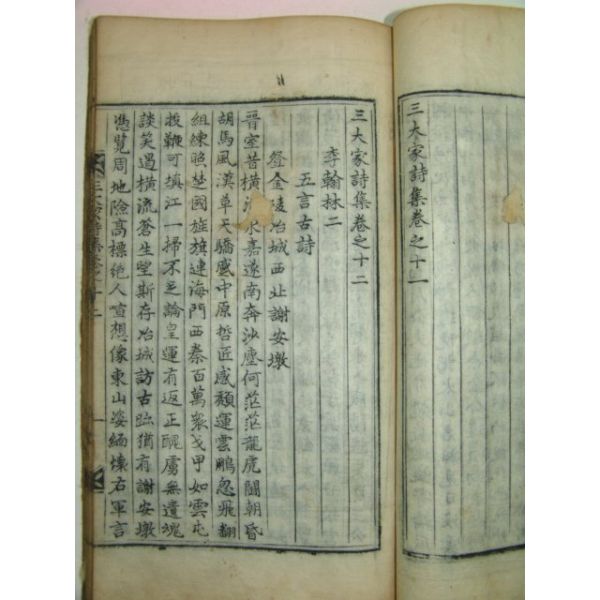 三大家詩集卷之十一
三大家詩集卷之十二
李翰林二
五言古詩
登金陵冶城西北謝安墩
晉室昔橫永嘉遂南奔沙塵何茫茫龍虎鬪朝昏
胡馬風漢草天驕蹙中原哲匠感頹運雲鵬忽飛翻
組練照楚國旌旗連海門西秦百萬衆戈甲如雲屯
投鞭可塡江一掃不足論皇運有返正醜虜無遺魂
談笑遏橫流蒼生望斯存冶城訪古跡猶有謝安墩
憑覽周地險高標絶人喧想像東山姿緬懷右軍言
三大家詩集卷之十二
一